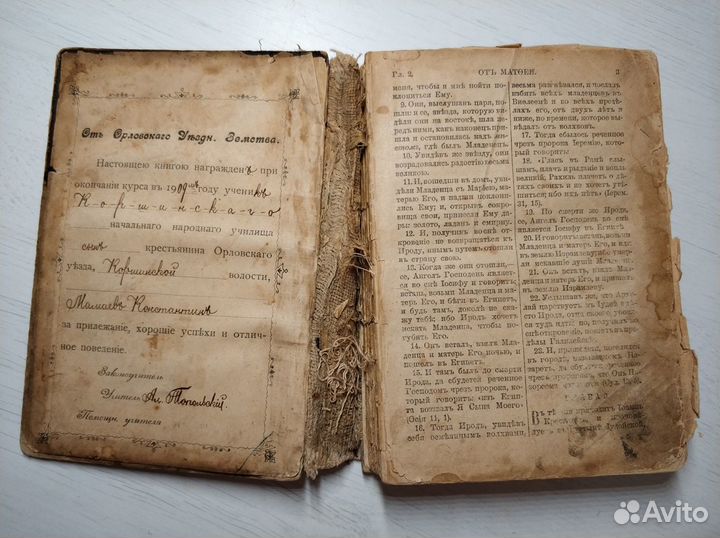 Отъ Орловскаго Уѣздн. Земства.
Настоящею книгою награжденъ при
окончаніи курса въ 1909 году ученикъ
Коршинскаго
начальнаго народнаго училища
сынъ крестьянина Орловскаго
уѣзда, Коршинской волости,
Малаевъ Константинъ
за прилежаніе, хорошіе успѣхи и отлич-
ное поведеніе.
Законоучитель
Учитель Ал.
Помощн. учителя
Гл. 2. ОТЪ МАТѲЕЯ. 3
меня, чтобы и мнѣ пойти по-
клониться Ему.
9. Они, выслушавъ царя, по-
шли: и се, звѣзда, которую ви-
дѣли они на востокѣ, шла пе-
редъ ними, какъ наконецъ при-
шла и остановилась надъ мѣ-
стомъ, гдѣ былъ Младенецъ.
10. Увидѣвъ же звѣзду, они
возрадовались радостію весьма
великою.
11. И, вошедши въ домъ, уви-
дѣли Младенца съ Маріею, ма-
терью Его, и падши поклони-
лись Ему; и, открывъ сокро-
вища свои, принесли Ему да-
ры: золото, ладанъ и смирну.
12. И, получивъ во снѣ
откровеніе не возвращаться къ
Ироду, инымъ путемъ отошли
въ страну свою.
13. Когда же они отошли,
се, Ангелъ Господень является
во снѣ Іосифу и говоритъ:
встань, возьми Младенца и ма-
терь Его, и бѣги въ Египетъ,
и будь тамъ, доколѣ не ска-
жу тебѣ; ибо Иродъ хочетъ
искать Младенца, чтобы по-
губить Его.
14. Онъ всталъ, взялъ Мла-
денца и матерь Его ночью, и
пошелъ въ Египетъ.
15. И тамъ былъ до смерти
Ирода, да сбудется реченное
Господомъ чрезъ пророка, ко-
торый говоритъ: изъ Егип-
та воззвалъ Я Сына Моего
(Осіи 11, 1).
16. Тогда Иродъ, увидѣвъ
себя осмѣяннымъ волхвами,
весьма разгнѣвался, и послалъ
избить всѣхъ младенцевъ въ
Виѳлеемѣ и во всѣхъ предѣ-
лахъ его, отъ двухъ лѣтъ и
ниже, по времени, которое вы-
вѣдалъ отъ волхвовъ.
17. Тогда сбылось реченное
чрез пророка Іеремію, кото-
рый говоритъ:
18. «Гласъ въ Рамѣ слы-
шанъ, плачъ и рыданіе и вопль
великій; Рахиль плачетъ о дѣ-
тяхъ своихъ и не хочетъ утѣ-
шиться; ибо ихъ нѣтъ» (Іерем.
31, 15).
19. По смерти же Ирода,
се, Ангелъ Господень во снѣ
является Іосифу въ Египтѣ
20. И говоритъ: встань, возьми
Младенца и матерь Его, и иди
въ землю Израилеву: ибо умерли
искавшіе душѣ Младенца.
21. Онъ всталъ, взялъ Мла-
денца и матерь Его, и пришелъ
въ землю Израилеву.
22. Услышавъ же, что Архе-
лай царствуетъ въ Іудеѣ вмѣ-
сто Ирода, отца своего, убоялся
туда идти; но,
предѣлы
Галилейскіе.
23. И, пришедши, поселился
въ городѣ, называемомъ Наза-
ретъ, да сбудется реченное
чрезъ пророковъ, что Онъ На-
зореемъ наречется.
Въ тѣ дни приходитъ Іоаннъ
Креститель и проповѣ-
дуетъ въ пустынѣ Іудейской,
Avito